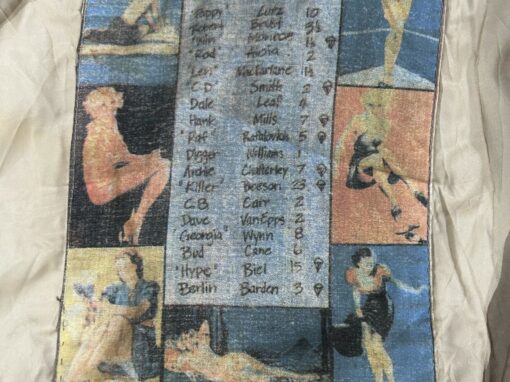 "Pappy" Lutz 10
"Red" Avola 2
"Len" MacFarlane 1½
C D Smith 2
Dale Leaf 4
Hank Mills 7
"Raf" Rafalovich 5
Digger Williams 1
Archie Chatterley 7
"Killer" Beeson 23
C.B. Carr 2
Dave VanEpps 2
"Georgia" Wynn 8
Bud Care 6
"Hype" Biel 15
Berlin Barden 3